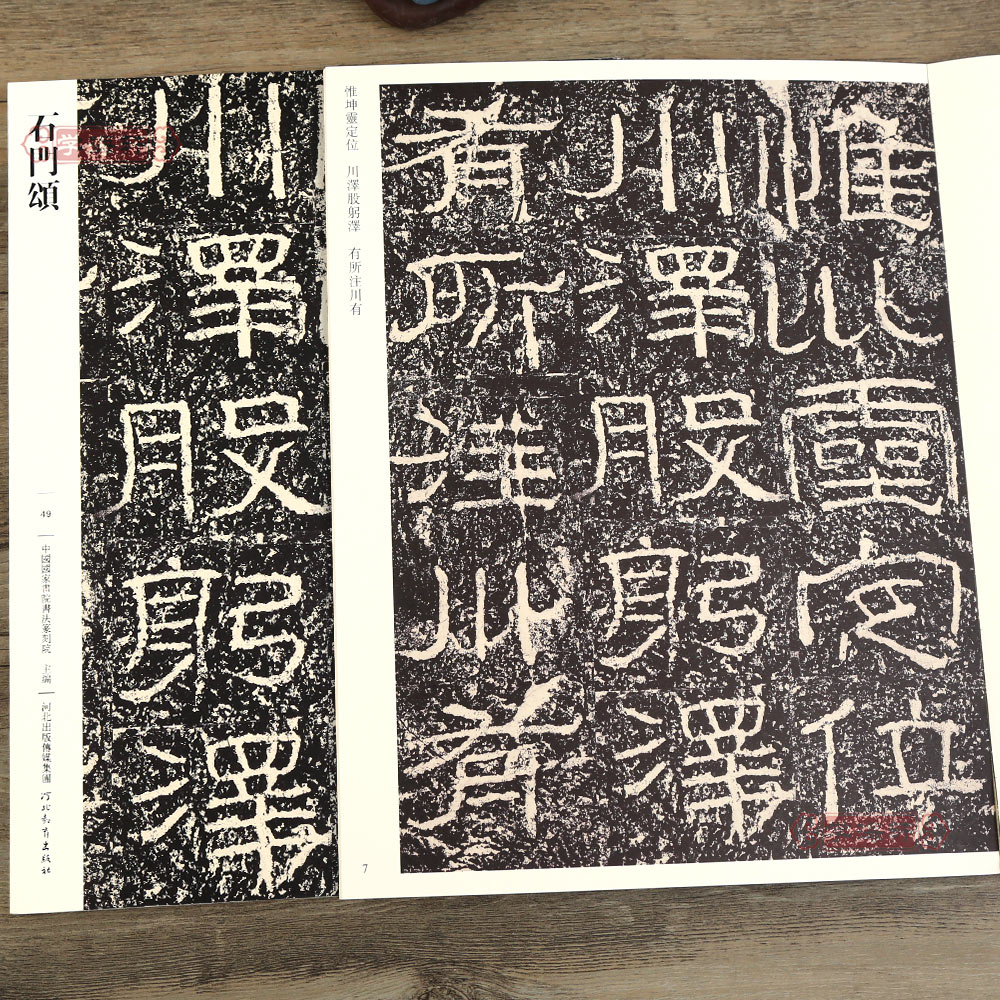 石門頌
49
中國國家書院書法篆刻院 主編
河北出版傳媒集團 河北教育出版社
川澤股躬澤
惟坤靈定位 川澤股躬澤 有所注川有
惟坤靈定位
川澤股躬澤
有所注川有
7